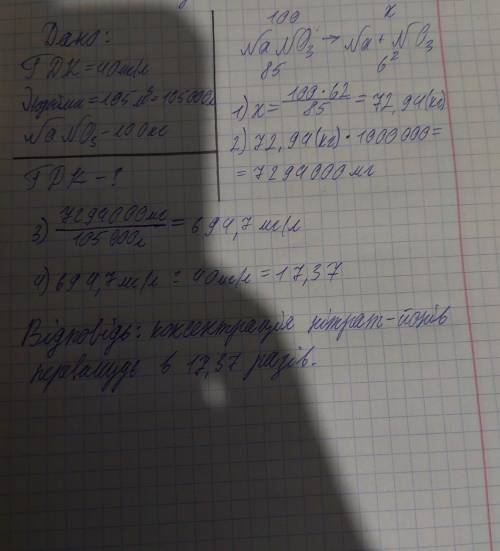 Дано:
ГДК = 40 мг/л
Vводойми = 105 м³ = 105000 л
NaNO₃ - 100 кг
ГДК - ?
100 x
NaNO₃ → Na + NO₃
85 62
1) x = 100 · 62 / 85 = 72,94 (кг)
2) 72,94 (кг) · 1000000 =
= 7294000 мг
3) 7294000 мг / 105000 л = 694,7 мг/л
4) 694,7 мг/л : 40 мг/л = 17,37
Відповідь: концентрація нітрат-йонів
перевищує в 17,37 разів.